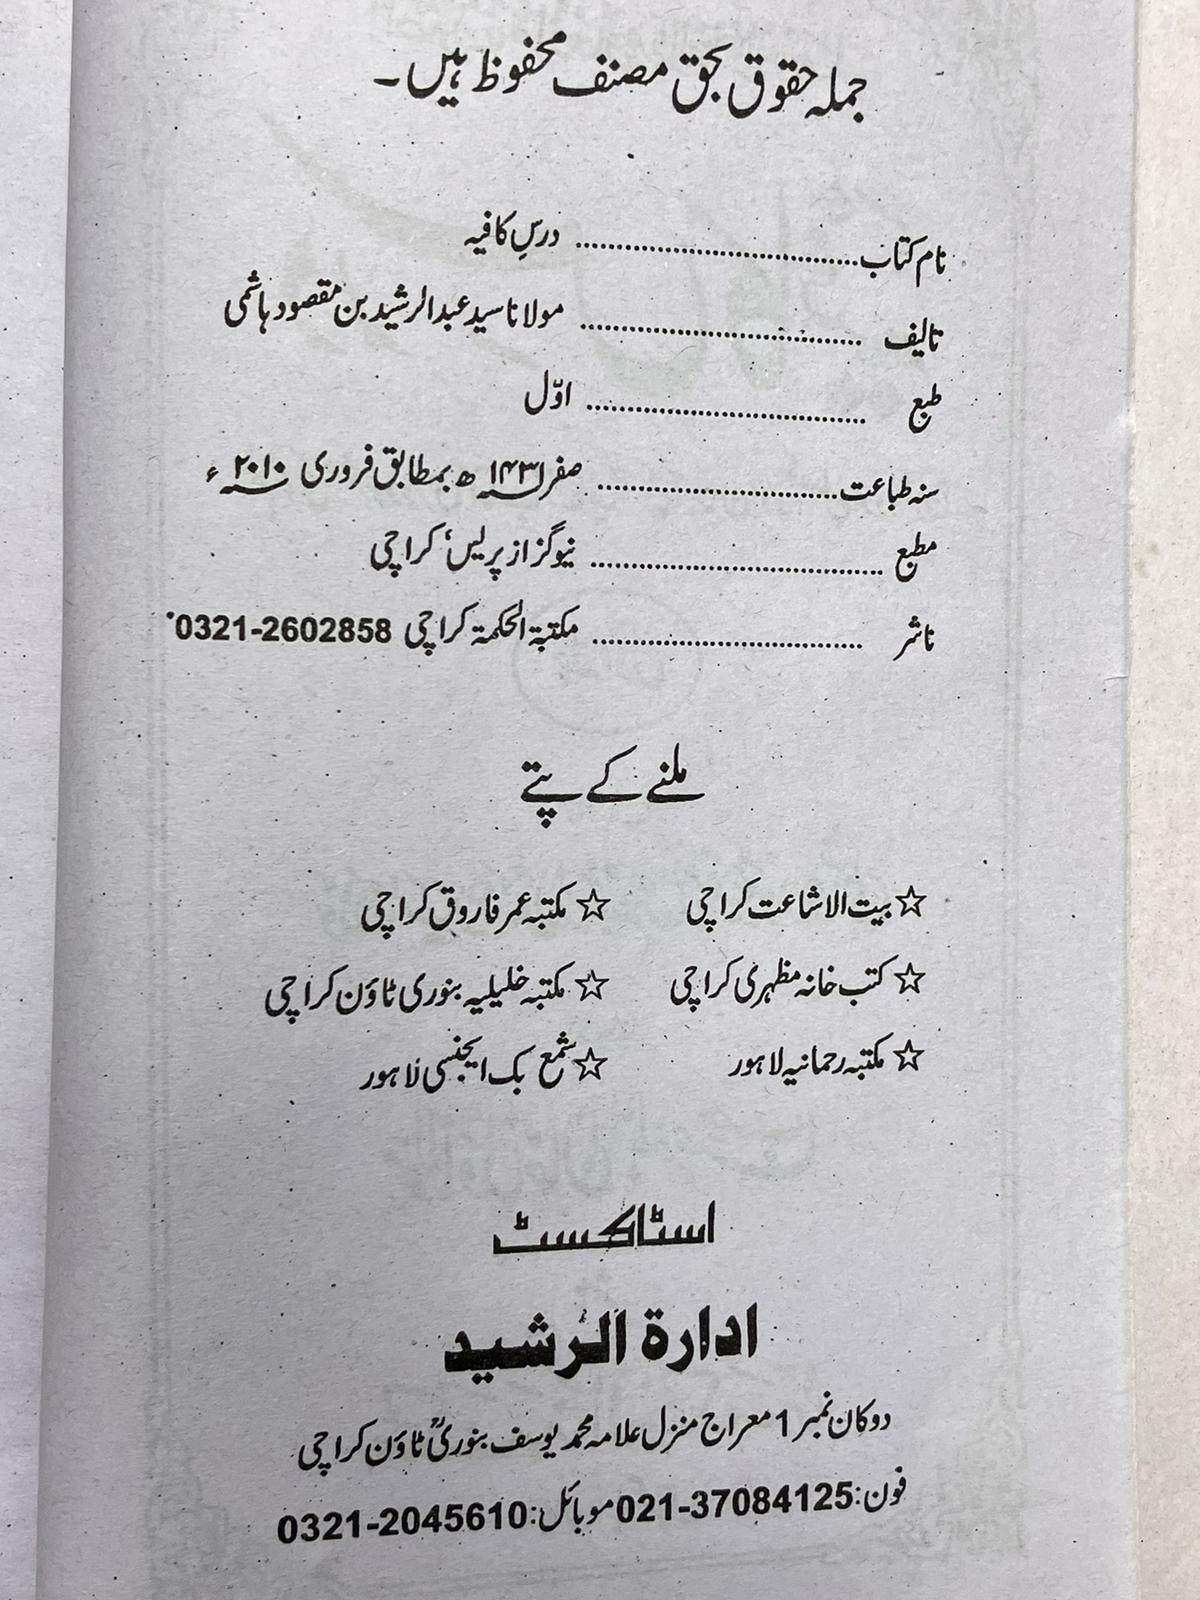 جملہ حقوق بحق مصنف محفوظ ہیں۔
نام کتاب ........................ درسِ کافیہ
تالیف ........................ مولانا سید عبدالرشید بن مقصود ہاشمی
طبع ........................ اوّل
سنہ طباعت ........................ صفر ۱۴۳۱ھ بمطابق فروری ۲۰۱۰ء
مطبع ........................ نیوگزاز پریس، کراچی
ناشر ........................ مکتبۃ الحکمۃ کراچی 0321-2602858
ملنے کے پتے
☆ بیت الاشاعت کراچی ☆ مکتبہ عمر فاروق کراچی
☆ کتب خانہ مظہری کراچی ☆ مکتبہ خلیلیہ بنوری ٹاؤن کراچی
☆ مکتبہ رحمانیہ لاہور ☆ شمع بک ایجنسی لاہور
اسٹاکسٹ
ادارۃ الرشید
دوکان نمبر 1 معراج منزل علامہ محمد یوسف بنوریؒ ٹاؤن کراچی
فون: 021-37084125 موبائل: 0321-2045610